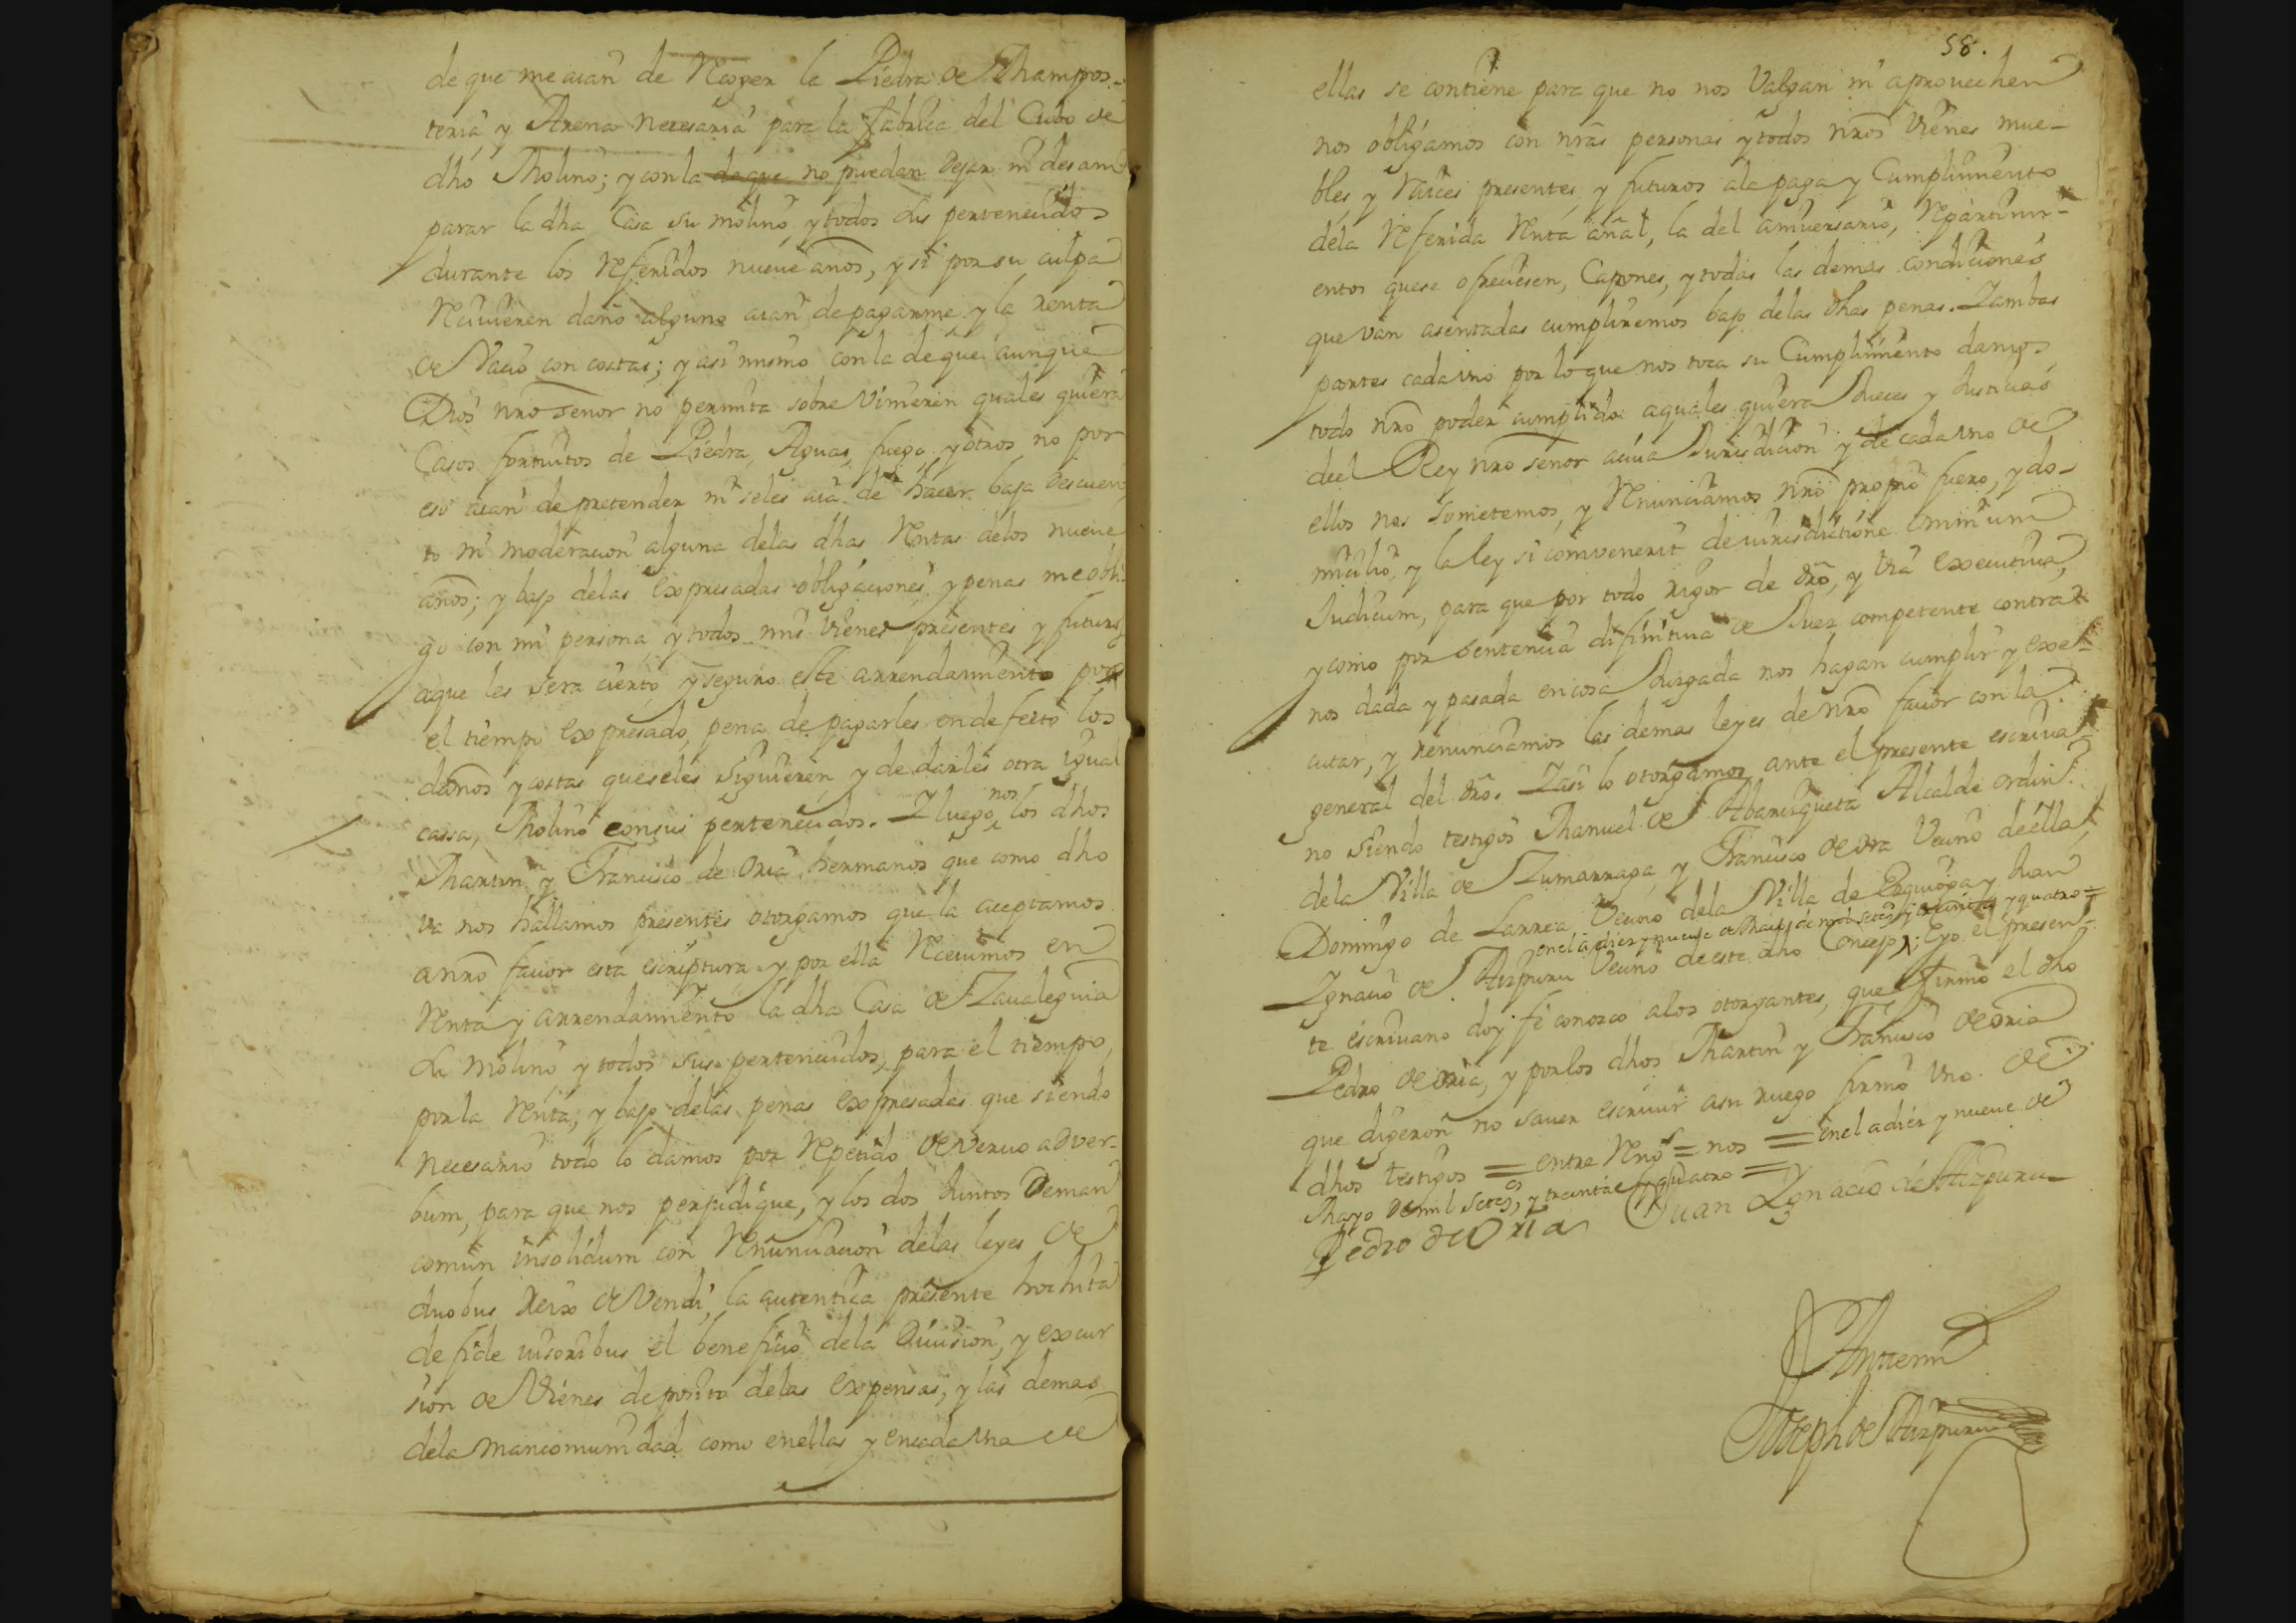 de que me aian de Recoger la Piedra de Mampos-
teria, y Arena necesaria para la fabrica del Cubo de
dho Molino; y con la de que no puedan dejar ni desam
parar la dha Casa su molino y todos sus pertenecidos
durante los Referidos nueve años, y si por su culpa
Reciuieren daño alguno aian de pagarme y la renta
de Vacio con costas; y asi mismo con la de que aunque
Dios nro señor no permita sobre Vinieren quales quiera
Casos fortuitos de Piedra, Aguas, fuego, y otros no por
eso aian de pretender ni seles aia de hacer baja descuen
to ni moderacion alguna delas dhas Rentas delos nueve
años; y bajo delas Expresadas obligaciones y penas me obli
go con mi persona, y todos mis Vienes presentes y futuros
aque les sera cierto, y seguro este arrendamiento por
el tiempo Expresado, pena de pagarles en defecto los
daños y costas que seles siguieren, y de darles otra igual
cassa, Molino consus pertenecidos. Y luego nos los dhos
Martin y Francisco de Oria hermanos que como dho
va nos hallamos presentes otorgamos que la aceptamos
anro fauor esta escriptura y por ella Reciuimos en
Renta y arrendamiento la dha Casa de Zaualeguia
su molino y todos sus pertenecidos, para el tiempo,
por la Renta, y bajo delas penas Expresadas que siendo
necesario todo lo damos por Repetido de Veruo adver-
bum, para que nos perjudique, y los dos Juntos Deman
comun insolidum con Renunciacion delas leyes de
duobus Reix de Vendi, la autentica presente hochita
de fide iusoribus el beneficio dela Diuision, y excur
sion de Vienes deposito delas Expensas, y las demas
dela mancomunidad como enellas y encada una de
58.
ellas se contiene para que no nos Valgan ni aprouechen
nos obligamos con nras personas y todos nros Vienes mue-
bles y Raices presentes y futuros ala paga y Cumplimiento
dela Referida Renta añal, la del aniversario, Repartimi-
entos quese ofreciesen, Capones, y todas las demas condiciones
que van asentadas cumpliremos bajo delas dhas penas. Y ambas
partes cada uno por lo que nos toca su Cumplimiento damos
todo nro poder cumplido aquales quiera Jueces y Justicias
deel Rey nro señor acuia Jurisdicion y de cada uno de
ellos nos sometemos, y Renunciamos nro propio fuero, y do-
micilio, y la ley si combenerit de iurisdictione Omnium
Judicum, para que por todo rigor de dro, y Via Executiua,
y como por sentencia difinitiua de Juez competente contra
nos dada y pasada en cosa Juzgada nos hagan cumplir y exe-
cutar, y renunciamos las demas leyes de nro fauor con la
general del dro. Y asi lo otorgamos ante el presente escriua
no siendo testigos Manuel de Abarizqueta Alcalde ordin
dela Villa de Zumarraga, y Francisco de Ora Vecino de ella,
Domingo de Larrea Vecino dela Villa de Ezquioga y Juan
enel a diez y nueve de Mayo de mil setecs y treinta y quatro =
Ygnacio de Aizpuru Vecino de este dho Concejo; Eyo el presen-
te escriuano doy fe conozco alos otorgantes, que firmó el dho
Pedro de Oria, y por los dhos Martin y Francisco de Oria
que digeron no sauer escriuir asu ruego firmó Uno de
dhos testigos = entre Rens = nos = enel a diez y nueve de
Mayo de mil setecs, y treinta y quatro =
Pedro de Oria Juan Ygnacio de Aizpuru
Antemi
Joseph de Aizpuru